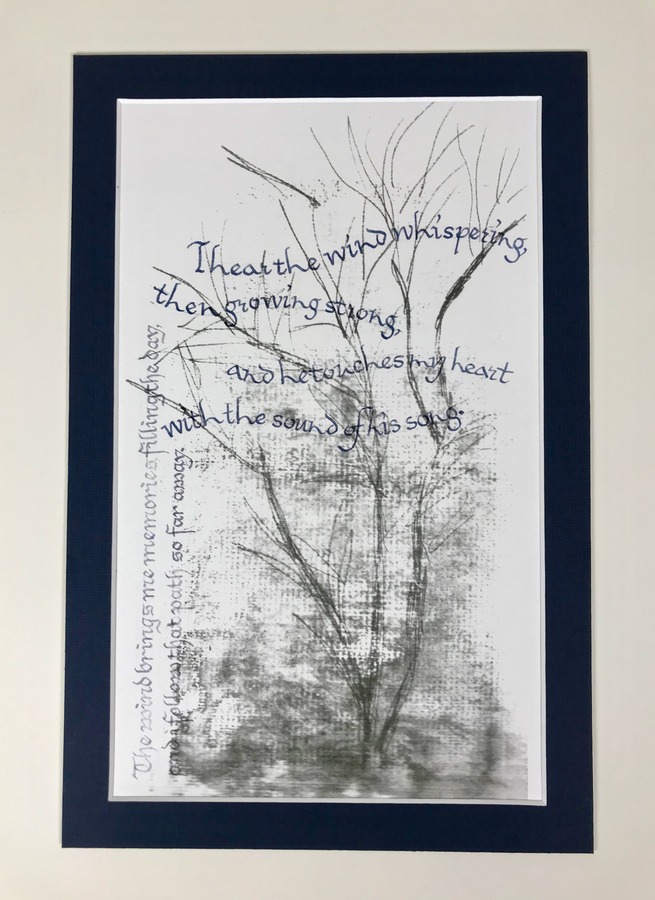 I hear the wind whispering,
then growing strong,
and he touches my heart
with the sound of his song.
The wind brings me memories filling the day,
and i follow that path so far away.